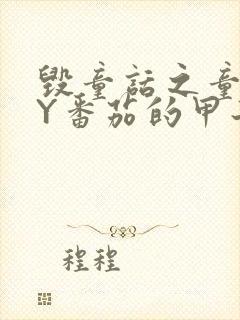 毁童话之童
Y番茄的甲
程程